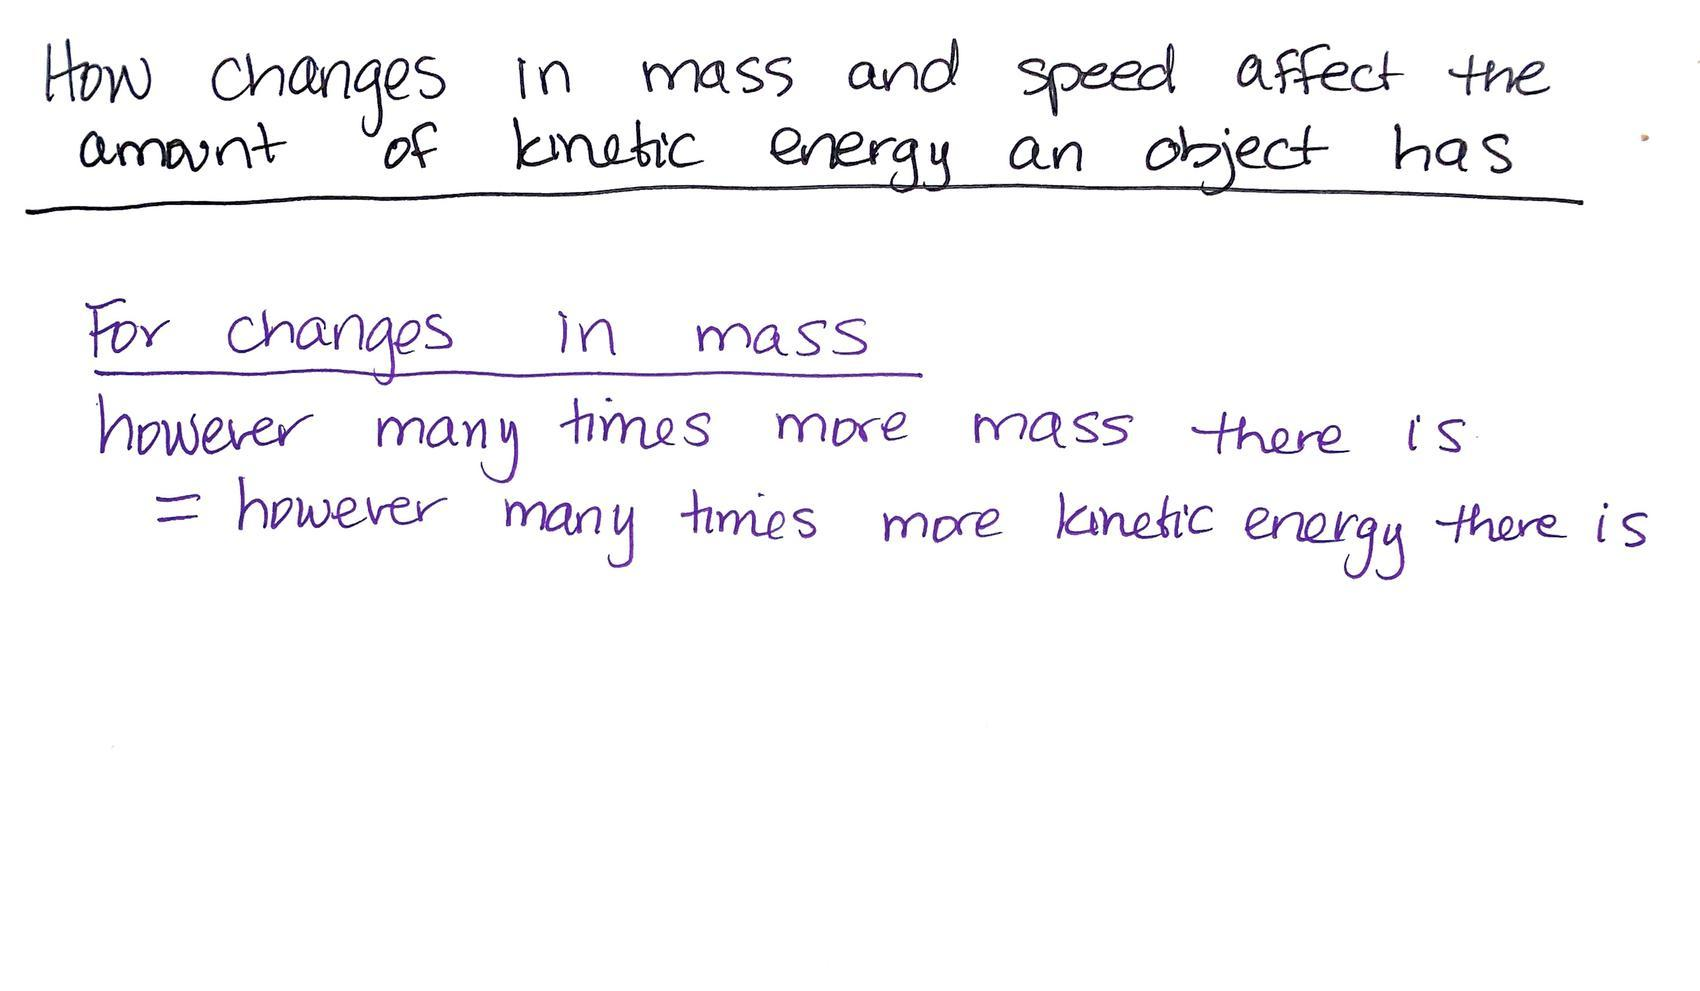 How changes in mass and speed affect the
amount of kinetic energy an object has
For changes in mass
however many times more mass there is
= however many times more kinetic energy there is